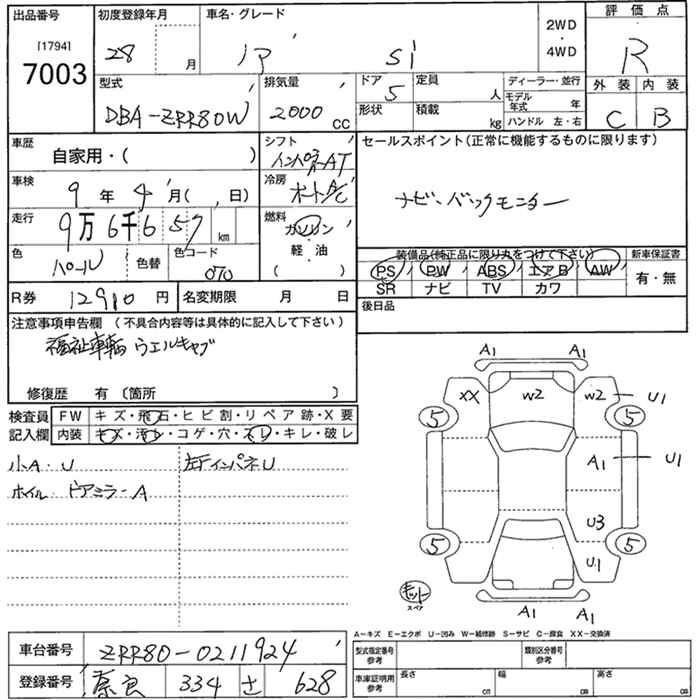 出品番号
[1794]
7003
初度登録年月
28 月
車名・グレード
ノア Si
2WD
・
4WD
評価点
R
外装 内装
C B
型式
DBA-ZRR80W
排気量
2000 CC
ドア
5
形状
定員
人
積載
kg
ディーラー・並行
モデル年式 年
ハンドル 左・右
車歴
自家用・( )
シフト
インパネAT
セールスポイント(正常に機能するものに限ります)
ナビ、バックモニター
車検
9年4月( 、 日)
冷房
オートA/C
走行
9万6千657km
燃料
ガソリン
軽・油
( )
色
パール
色替
色コード
070
装備品(純正品に限り丸をつけて下さい)
PS PW ABS エアB AW
SR ナビ TV カワ
新車保証書
有・無
R券 12910円
名変期限 月 日
後日品
注意事項申告欄(不具合内容等は具体的に記入して下さい)
福祉車輌 ウエルキャブ
修復歴 有(箇所 )
検査員記入欄
FW キズ・飛石・ヒビ割・リペア跡・X要
内装 キズ・汚レ・コゲ・穴・スレ・キレ・破レ
小A・U
左下インパネU
ホイル・ドアミラーA
A1 A1
XX W2 W2 U1
5 5
A1 U1
U3
5 5
U1
キット
スペア
A1 A1
A-キズ E-エクボ U-凹み W-補修跡 S-サビ C-腐食 XX-交換済
車台番号
ZRR80-0211924
登録番号
奈良 334 さ 628
型式指定番号
参考
類別区分番号
参考
車庫証明用
参考
長さ cm
幅 cm
高さ cm